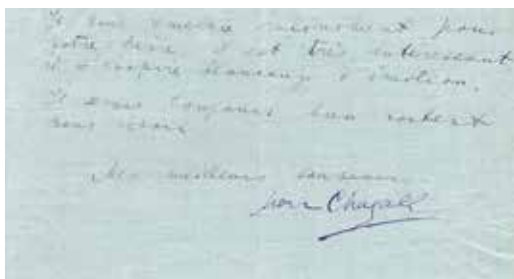 Je vous remercie infiniment pour
votre livre. Il est très intéressant
et inspire beaucoup d'émotion.
Je serai toujours bien content
vous
Mes meilleurs souvenirs
Marc Chagall